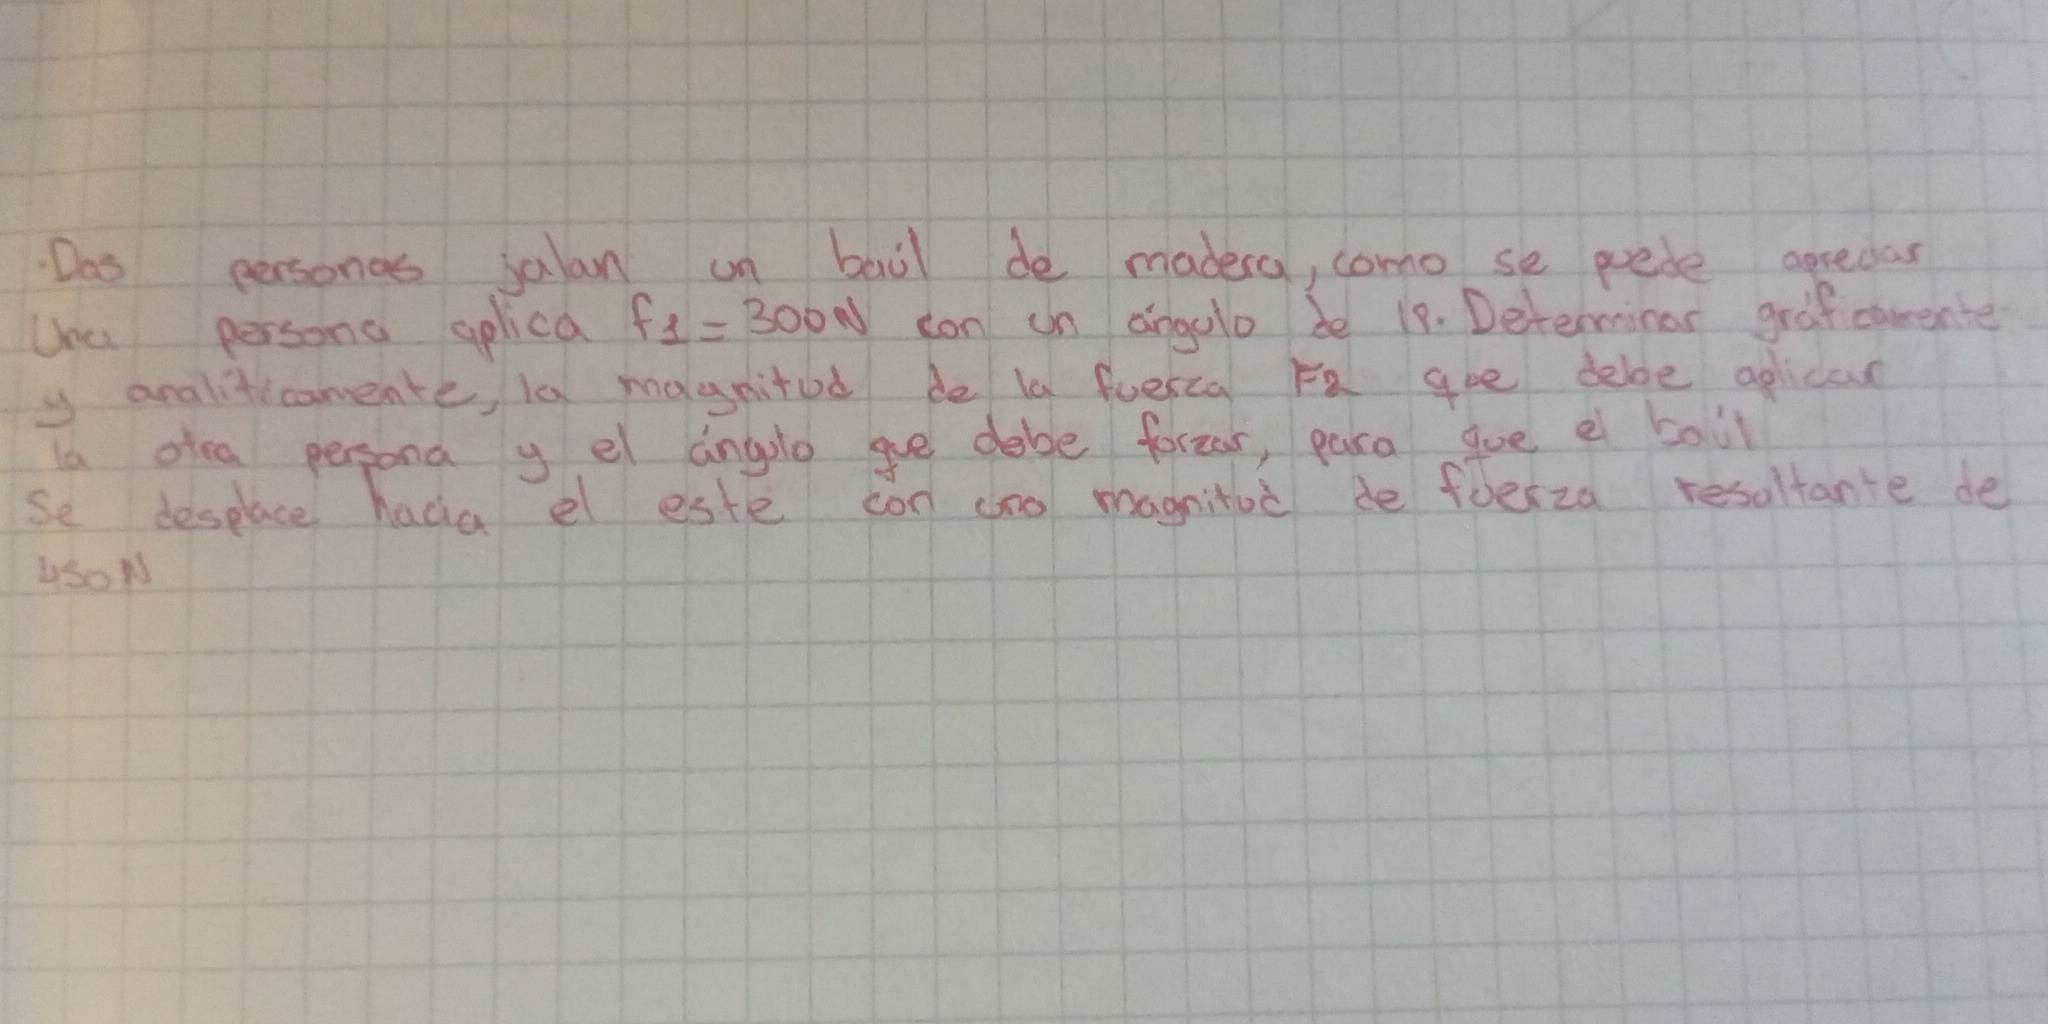 ·Dos personas jalan un baúl de madera, como se puede apreciar
Una persona aplica f1=300N con un ángulo de 19. Determinar gráficamente
y analíticamente, la magnitud de la fuerza F2 que debe aplicar
la otra persona y el ángulo que debe forzar, para que el baúl
Se desplace hacia el este con una magnitud de fuerza resultante de
450N